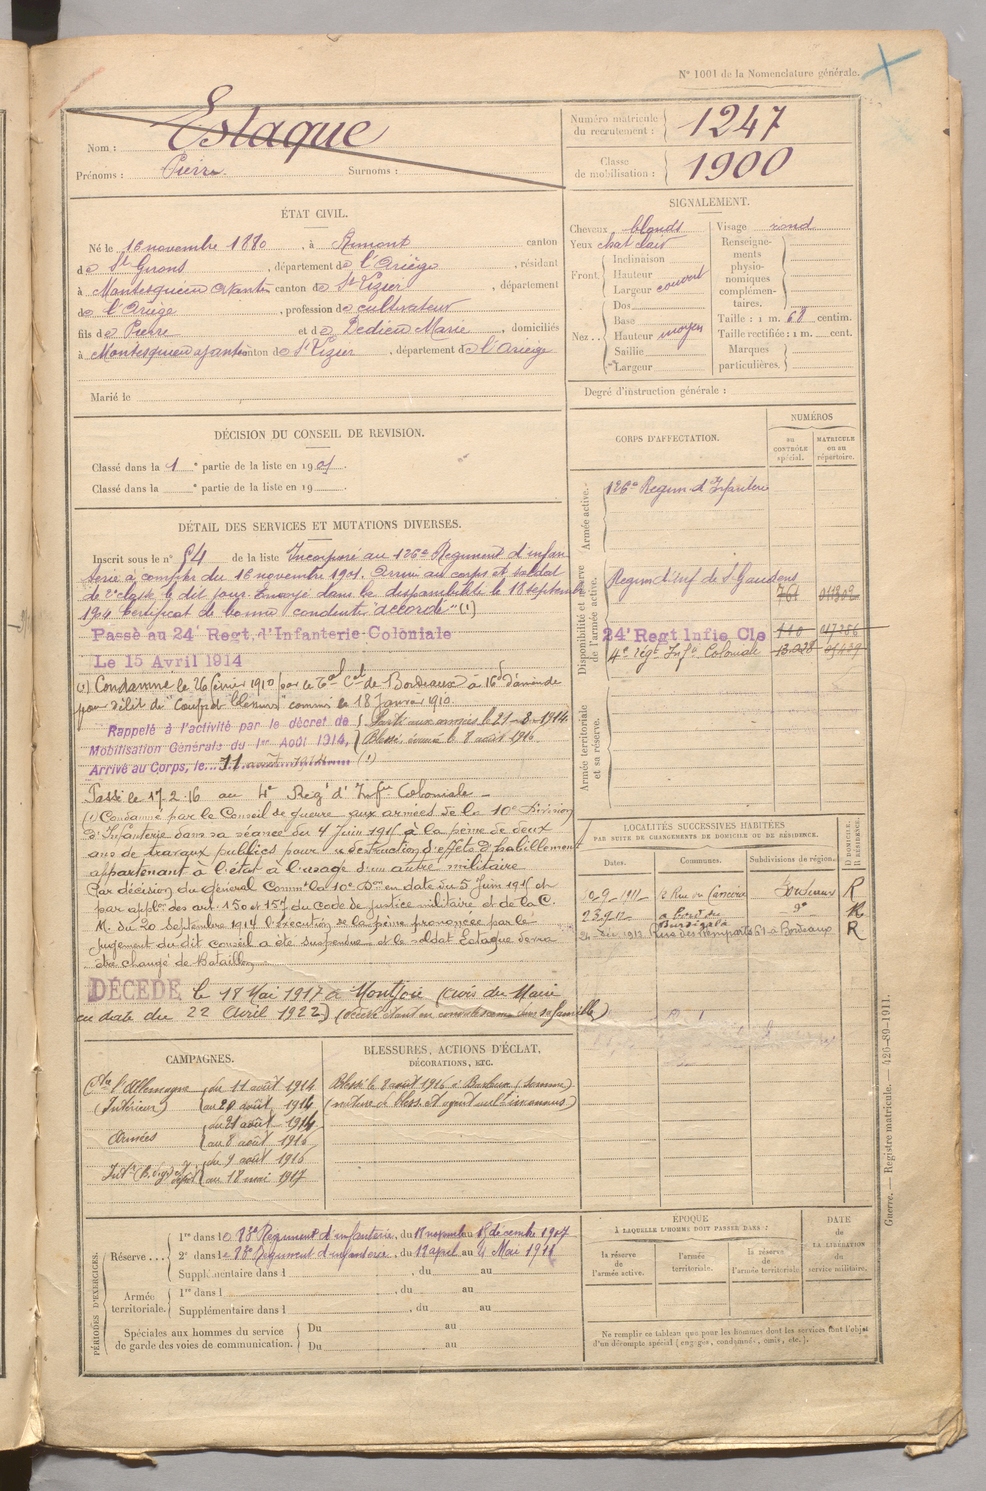 N° 1001 de la Nomenclature générale.
Nom : Estaque
Prénoms : Pierre Surnoms :
Numéro matricule du recrutement : 1247
Classe de mobilisation : 1900
ÉTAT CIVIL.
Né le 16 novembre 1880, à Rimont canton
de St Girons, département de l'Ariège, résidant
à Montesquieu Avantès canton de St Lizier, département
de l'Ariège, profession de cultivateur
fils de Pierre et de Dedieu Marie, domiciliés
à Montesquieu Avantès canton de St Lizier, département de l'Ariège
Marié le
SIGNALEMENT.
Cheveux blonds
Yeux chat clair
Front. Inclinaison
Hauteur
Largeur couvert
Nez.. Dos
Base
Hauteur moyen
Saillie
Largeur
Visage rond
Renseignements physionomiques complémentaires.
Taille : 1 m. 68 centim.
Taille rectifiée : 1 m. cent.
Marques particulières.
Degré d'instruction générale :
DÉCISION DU CONSEIL DE REVISION.
Classé dans la 1e partie de la liste en 1901.
Classé dans la e partie de la liste en 19
DÉTAIL DES SERVICES ET MUTATIONS DIVERSES.
Inscrit sous le n° 54 de la liste Incorporé au 126e Regiment d'infan
terie à compter du 16 novembre 1901. Arrivé au corps et soldat
de 2e classe le dit jour. Envoyé dans la disponibilité le 18 septembre
1904 Certificat de bonne conduite "accordé" (1)
Passé au 24e Regt. d'Infanterie Coloniale
Le 15 Avril 1914
(1) Condamné le 26 février 1910 par le Tal Cel de Bordeaux à 16f d'amende
pour délit de "Coups et blessures" commis le 18 Janvier 1910.
Rappelé à l'activité par le décret de
Mobilisation Générale du 1er Août 1914,
Arrivé au Corps, le 11 août 1914
Parti aux armées le 21-8-1914
Blessé évacué le 8 août 1916
(1)
Passé le 17.2.16 au 4e Regt d'Infie Coloniale
(1) Condamné par le Conseil de guerre aux armées de la 10e Division
d'Infanterie dans sa séance du 4 juin 1915 à la peine de deux
ans de travaux publics pour "destruction d'effets d'habillement
appartenant à l'état à l'usage d'un autre militaire
Par décision du Général Commt la 10e Don en date du 5 Juin 1915 et
par applon des art. 150 et 157 du Code de justice militaire et de la C.
M. du 20 septembre 1914 l'exécution de la peine prononcée par le
jugement du dit conseil a été suspendue et le soldat Estaque devra
être changé de Bataillon
DÉCÉDÉ le 18 Mai 1917 à Montjoie (avis du Maire
en date du 22 Avril 1922) (décédé étant en convalescence dans sa famille)
CORPS D'AFFECTATION.
NUMÉROS
au contrôle spécial.
matricule ou au répertoire.
Armée active.
126e Regim d'Infanterie
Disponibilité et réserve de l'armée active.
Regim d'inf de St Gaudens 761
24e Regt Infie Cle 110
4e régt Infie Coloniale
Armée territoriale et sa réserve.
LOCALITÉS SUCCESSIVES HABITÉES
PAR SUITE DE CHANGEMENTS DE DOMICILE OU DE RÉSIDENCE.
Dates. Communes. Subdivisions de région. D DOMICILE. R RÉSIDENCE.
Bordeaux R
23.9.12 à bord du Burdigala do R
Rue des Remparts 61 à Bordeaux R
CAMPAGNES.
Ctre l'Allemagne du 11 août 1914
(Intérieur) au 20 août 1914
Armées du 21 août 1914
au 8 août 1916
du 9 août 1916
au 18 mai 1917
BLESSURES, ACTIONS D'ÉCLAT,
DÉCORATIONS, ETC.
Blessé le 8 août 1916 à Barleux (Somme)
(nature de bless. et agent vuln. inconnus)
PÉRIODES D'EXERCICES.
Réserve... 1re dans le 88e Regiment d'infanterie, du 18 novemb au 15 décembre 1907
2e dans le 88e Regiment d'infanterie, du 18 april au 4 Mai 1911
Supplémentaire dans l , du au
Armée territoriale. 1re dans l , du au
Supplémentaire dans l , du au
Spéciales aux hommes du service de garde des voies de communication. Du au
Du au
ÉPOQUE
À LAQUELLE L'HOMME DOIT PASSER DANS :
la réserve de l'armée active.
l'armée territoriale.
la réserve de l'armée territoriale
DATE DE LA LIBÉRATION du service militaire.
Ne remplir ce tableau que pour les hommes dont les services font l'objet
d'un décompte spécial (engagés, condamnés, omis, etc.).
Guerre. — Registre matricule. — 426-89-1911.